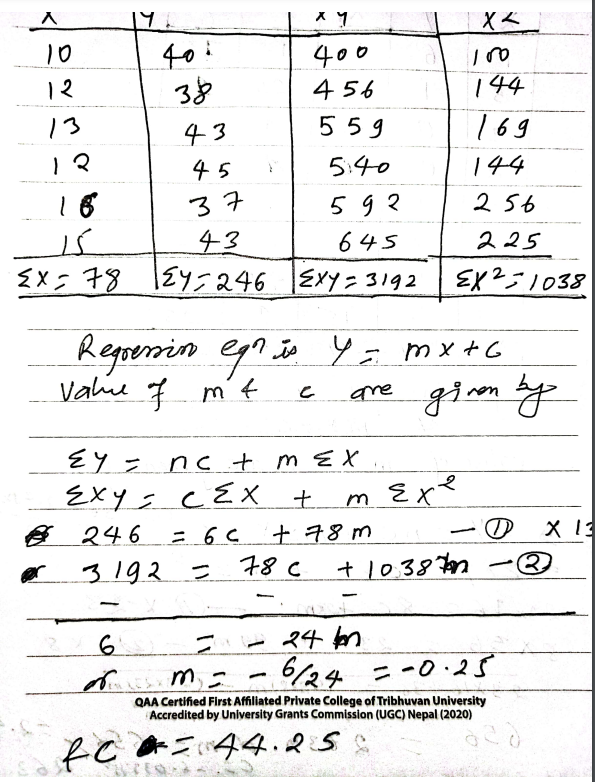 X Y XY X2
10 40 400 100
12 38 456 144
13 43 559 169
12 45 540 144
16 37 592 256
15 43 645 225
ΣX = 78 ΣY = 246 ΣXY = 3192 ΣX² = 1038
Regression eqn is Y = mx + c
Value of m & c are given by
ΣY = nc + mΣX
ΣXY = cΣX + mΣX²
246 = 6c + 78m — ① X 13
3192 = 78c + 1038m — ②
– – –
6 = - 24m
or m = - 6/24 = -0.25
QAA Certified First Affiliated Private College of Tribhuvan University
Accredited by University Grants Commission (UGC) Nepal (2020)
& c = 44.25